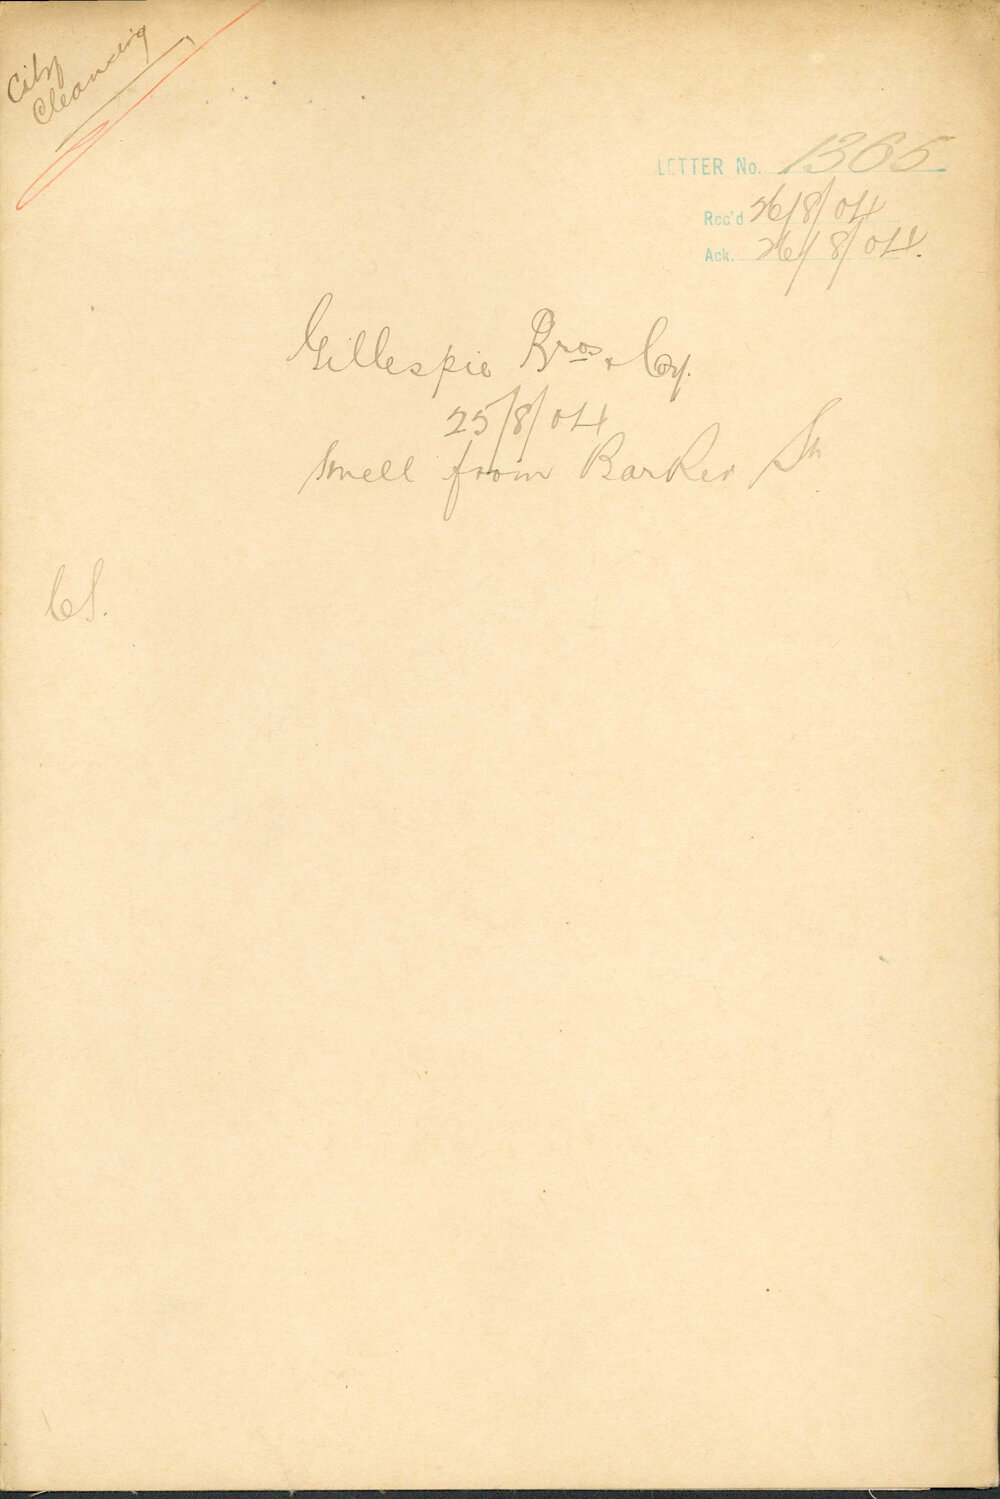 City
Cleansing
LETTER No. 1365
Rec'd 26/8/04
Ack. 26/8/04.
Gillespie Bros & Coy.
25/8/04
Smell from Barker St
CS.